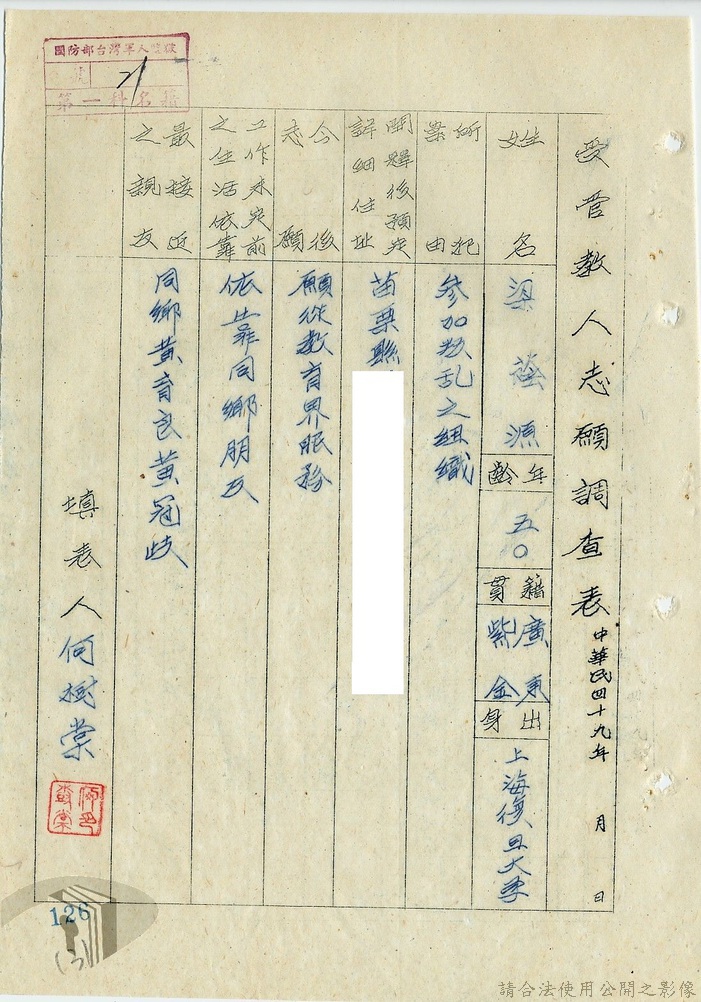 受管教人志願調查表
中華民四十九年 月 日
姓名
梁蓊源
年齡
五〇
籍貫
廣東紫金
出身
上海復旦大學
所犯案由
參加叛乱之組織
開釋後預定詳細住址
苗栗縣
今後志願
願從教育界服務
工作未定前之生活依靠
依靠同鄉朋友
最接近之親友
同鄉黃育良黃冠岐
填表人何樹棠
國防部台灣軍人監獄
21
第一科名籍
126
請合法使用公開之影像